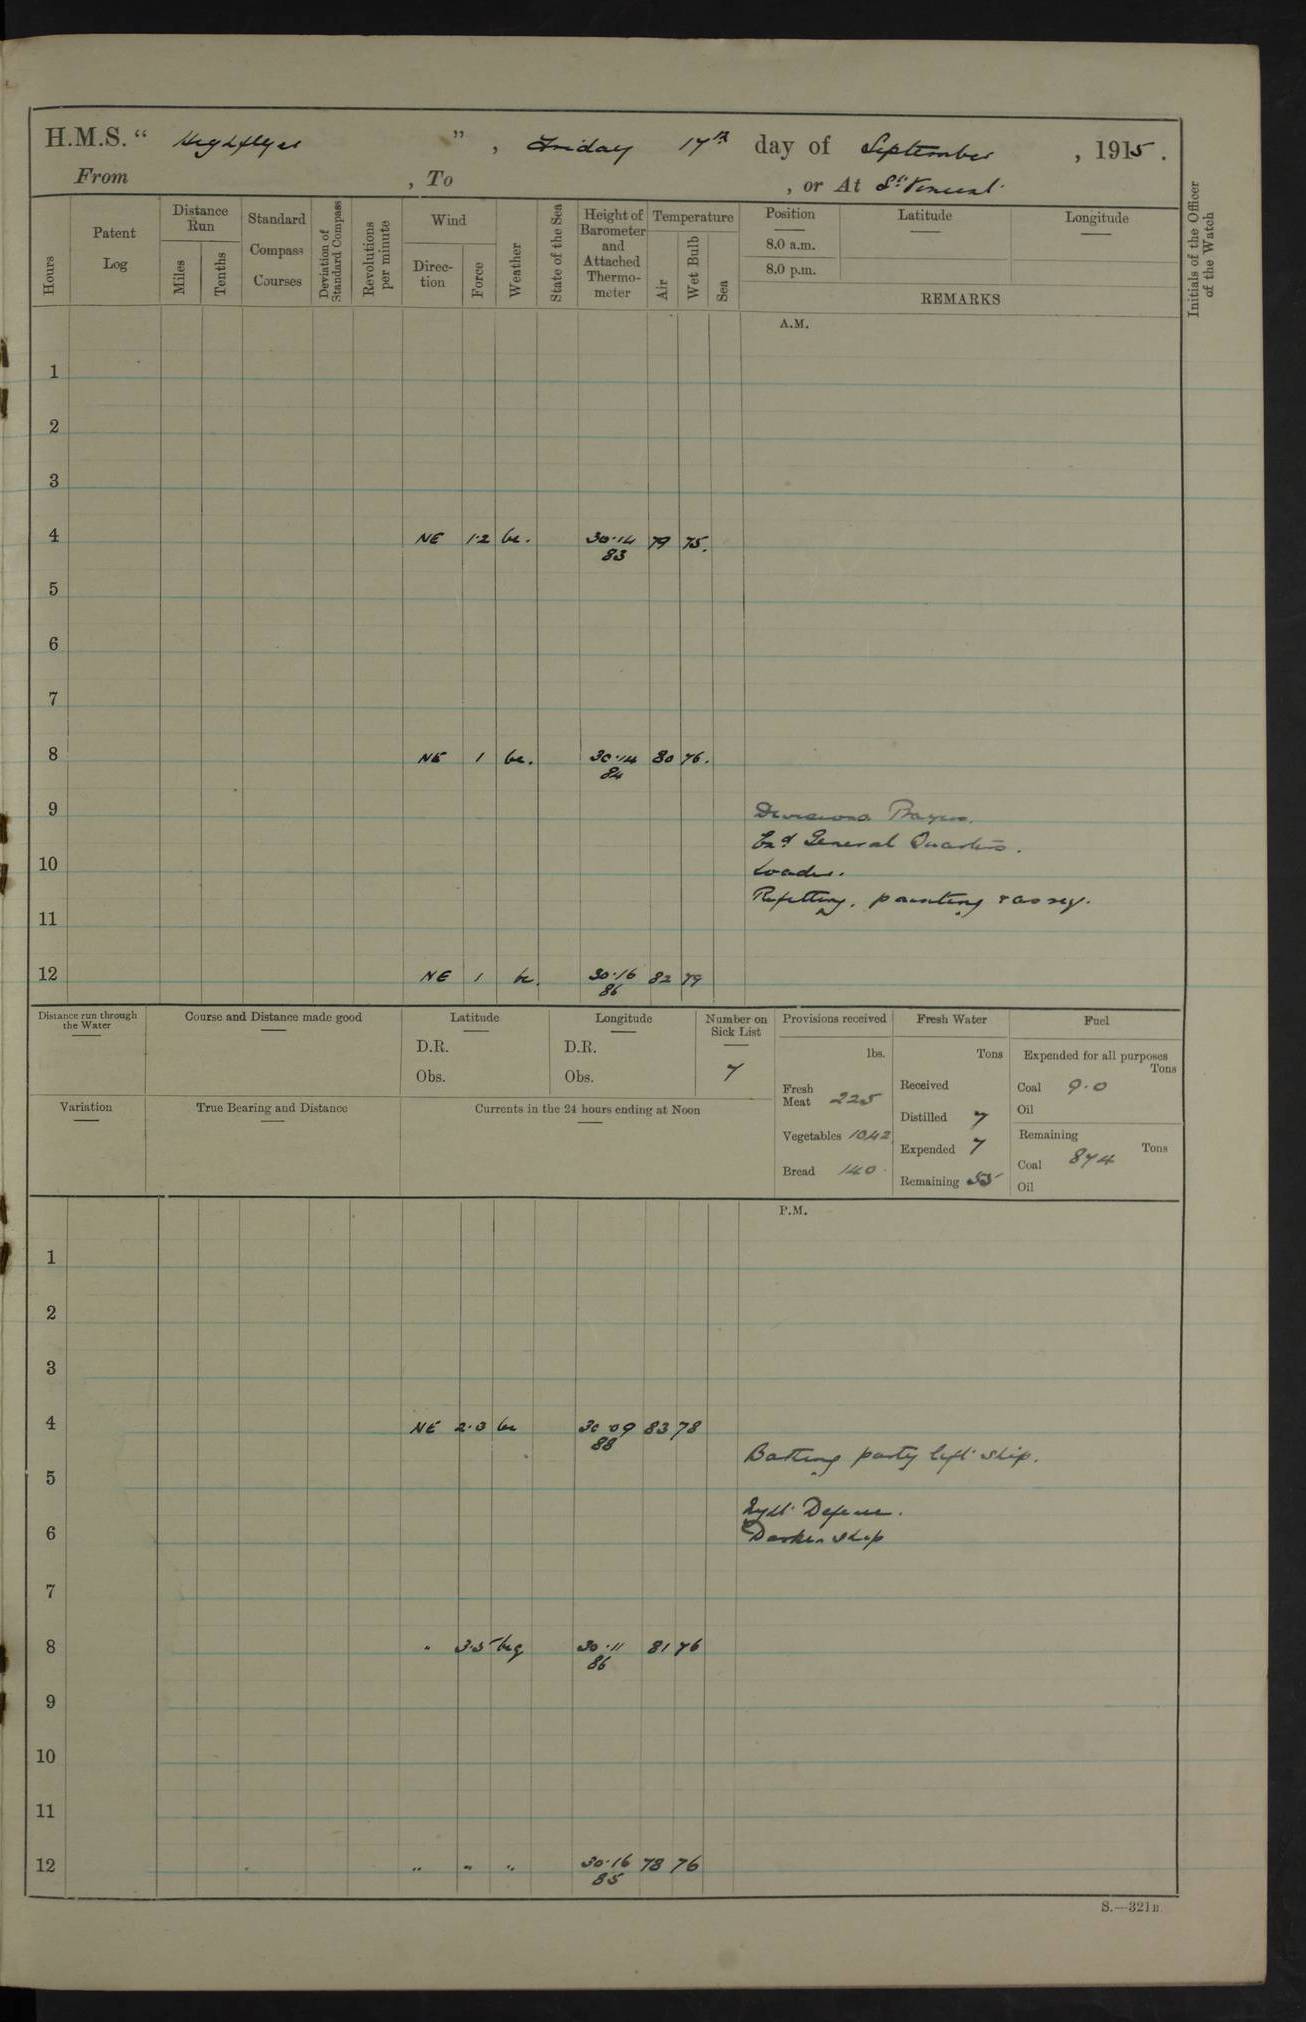 H.M.S. “ Highflyer ” , Friday 17th day of September , 1915 .
From , To , or At St Vincent.
Hours
Patent Log
Distance Run
Miles
Tenths
Standard Compass Courses
Deviation of Standard Compass
Revolutions per minute
Wind
Direc-tion
Force
Weather
State of the Sea
Height of Barometer and Attached Thermo-meter
Temperature
Air
Wet Bulb
Sea
Position
8.0 a.m.
8.0 p.m.
Latitude
Longitude
REMARKS
Initials of the Officer of the Watch
A.M.
1
2
3
4 NE 1.2 bc. 30.14 79 75.
83
5
6
7
8 NE 1 bc. 30.14 80 76.
84
9
Divisions Prayers.
Exd General Quarters.
10
Loader.
Refitting, painting
11
12 NE 1 bc. 30.16 82 79
86
Distance run through the Water
Course and Distance made good
Latitude
D.R.
Obs.
Longitude
D.R.
Obs.
Number on Sick List
7
Provisions received
lbs.
Fresh Meat 225
Vegetables 1042
Bread 140
Fresh Water
Tons
Received
Distilled 7
Expended 7
Remaining 55
Fuel
Expended for all purposes
Tons
Coal 9.0
Oil
Remaining
Tons
Coal 874
Oil
Variation
True Bearing and Distance
Currents in the 24 hours ending at Noon
P.M.
1
2
3
4 NE 2.3 bc 30.09 83 78
88
Bathing party left ship.
5
Night Defence.
6
Darken ship
7
8 " 3.5 bcq 30.11 81 76
86
9
10
11
12 " " " 30.16 78 76
85
S.—321B.